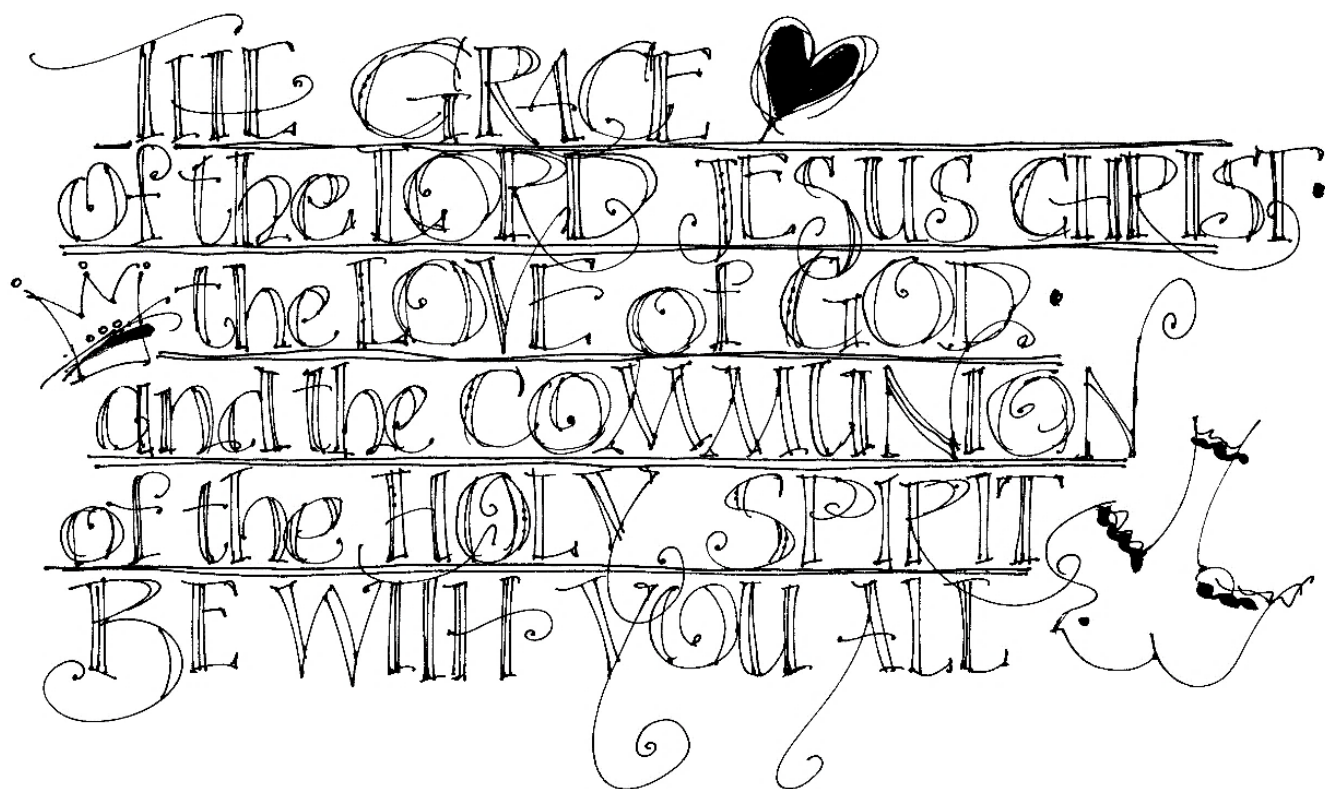 THE GRACE
of the LORD JESUS CHRIST.
the LOVE of GOD.
and the COMMUNION
of the HOLY SPIRIT
BE WITH YOU ALL